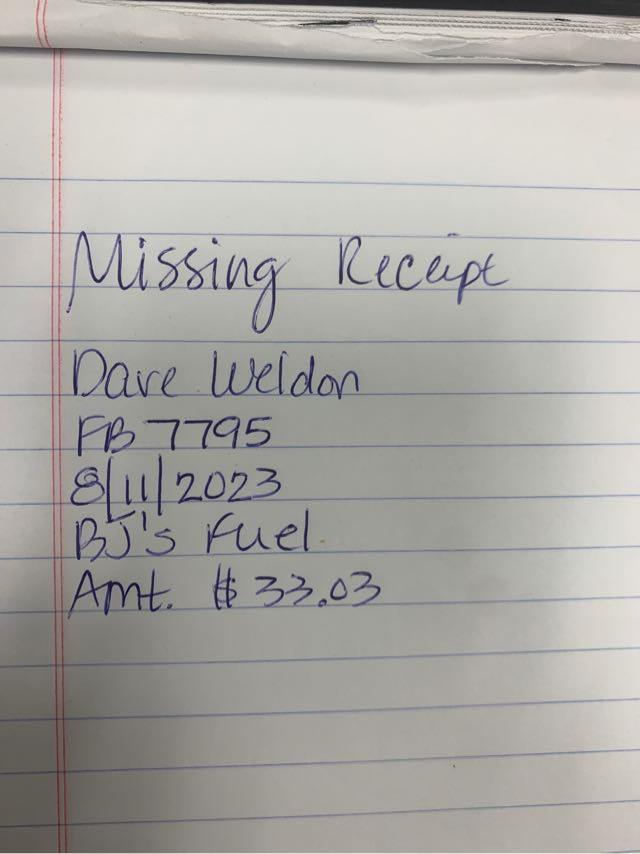 Missing Receipt
Dave Weldon
FB 7795
8/11/2023
BJ's Fuel
Amt. $33.03